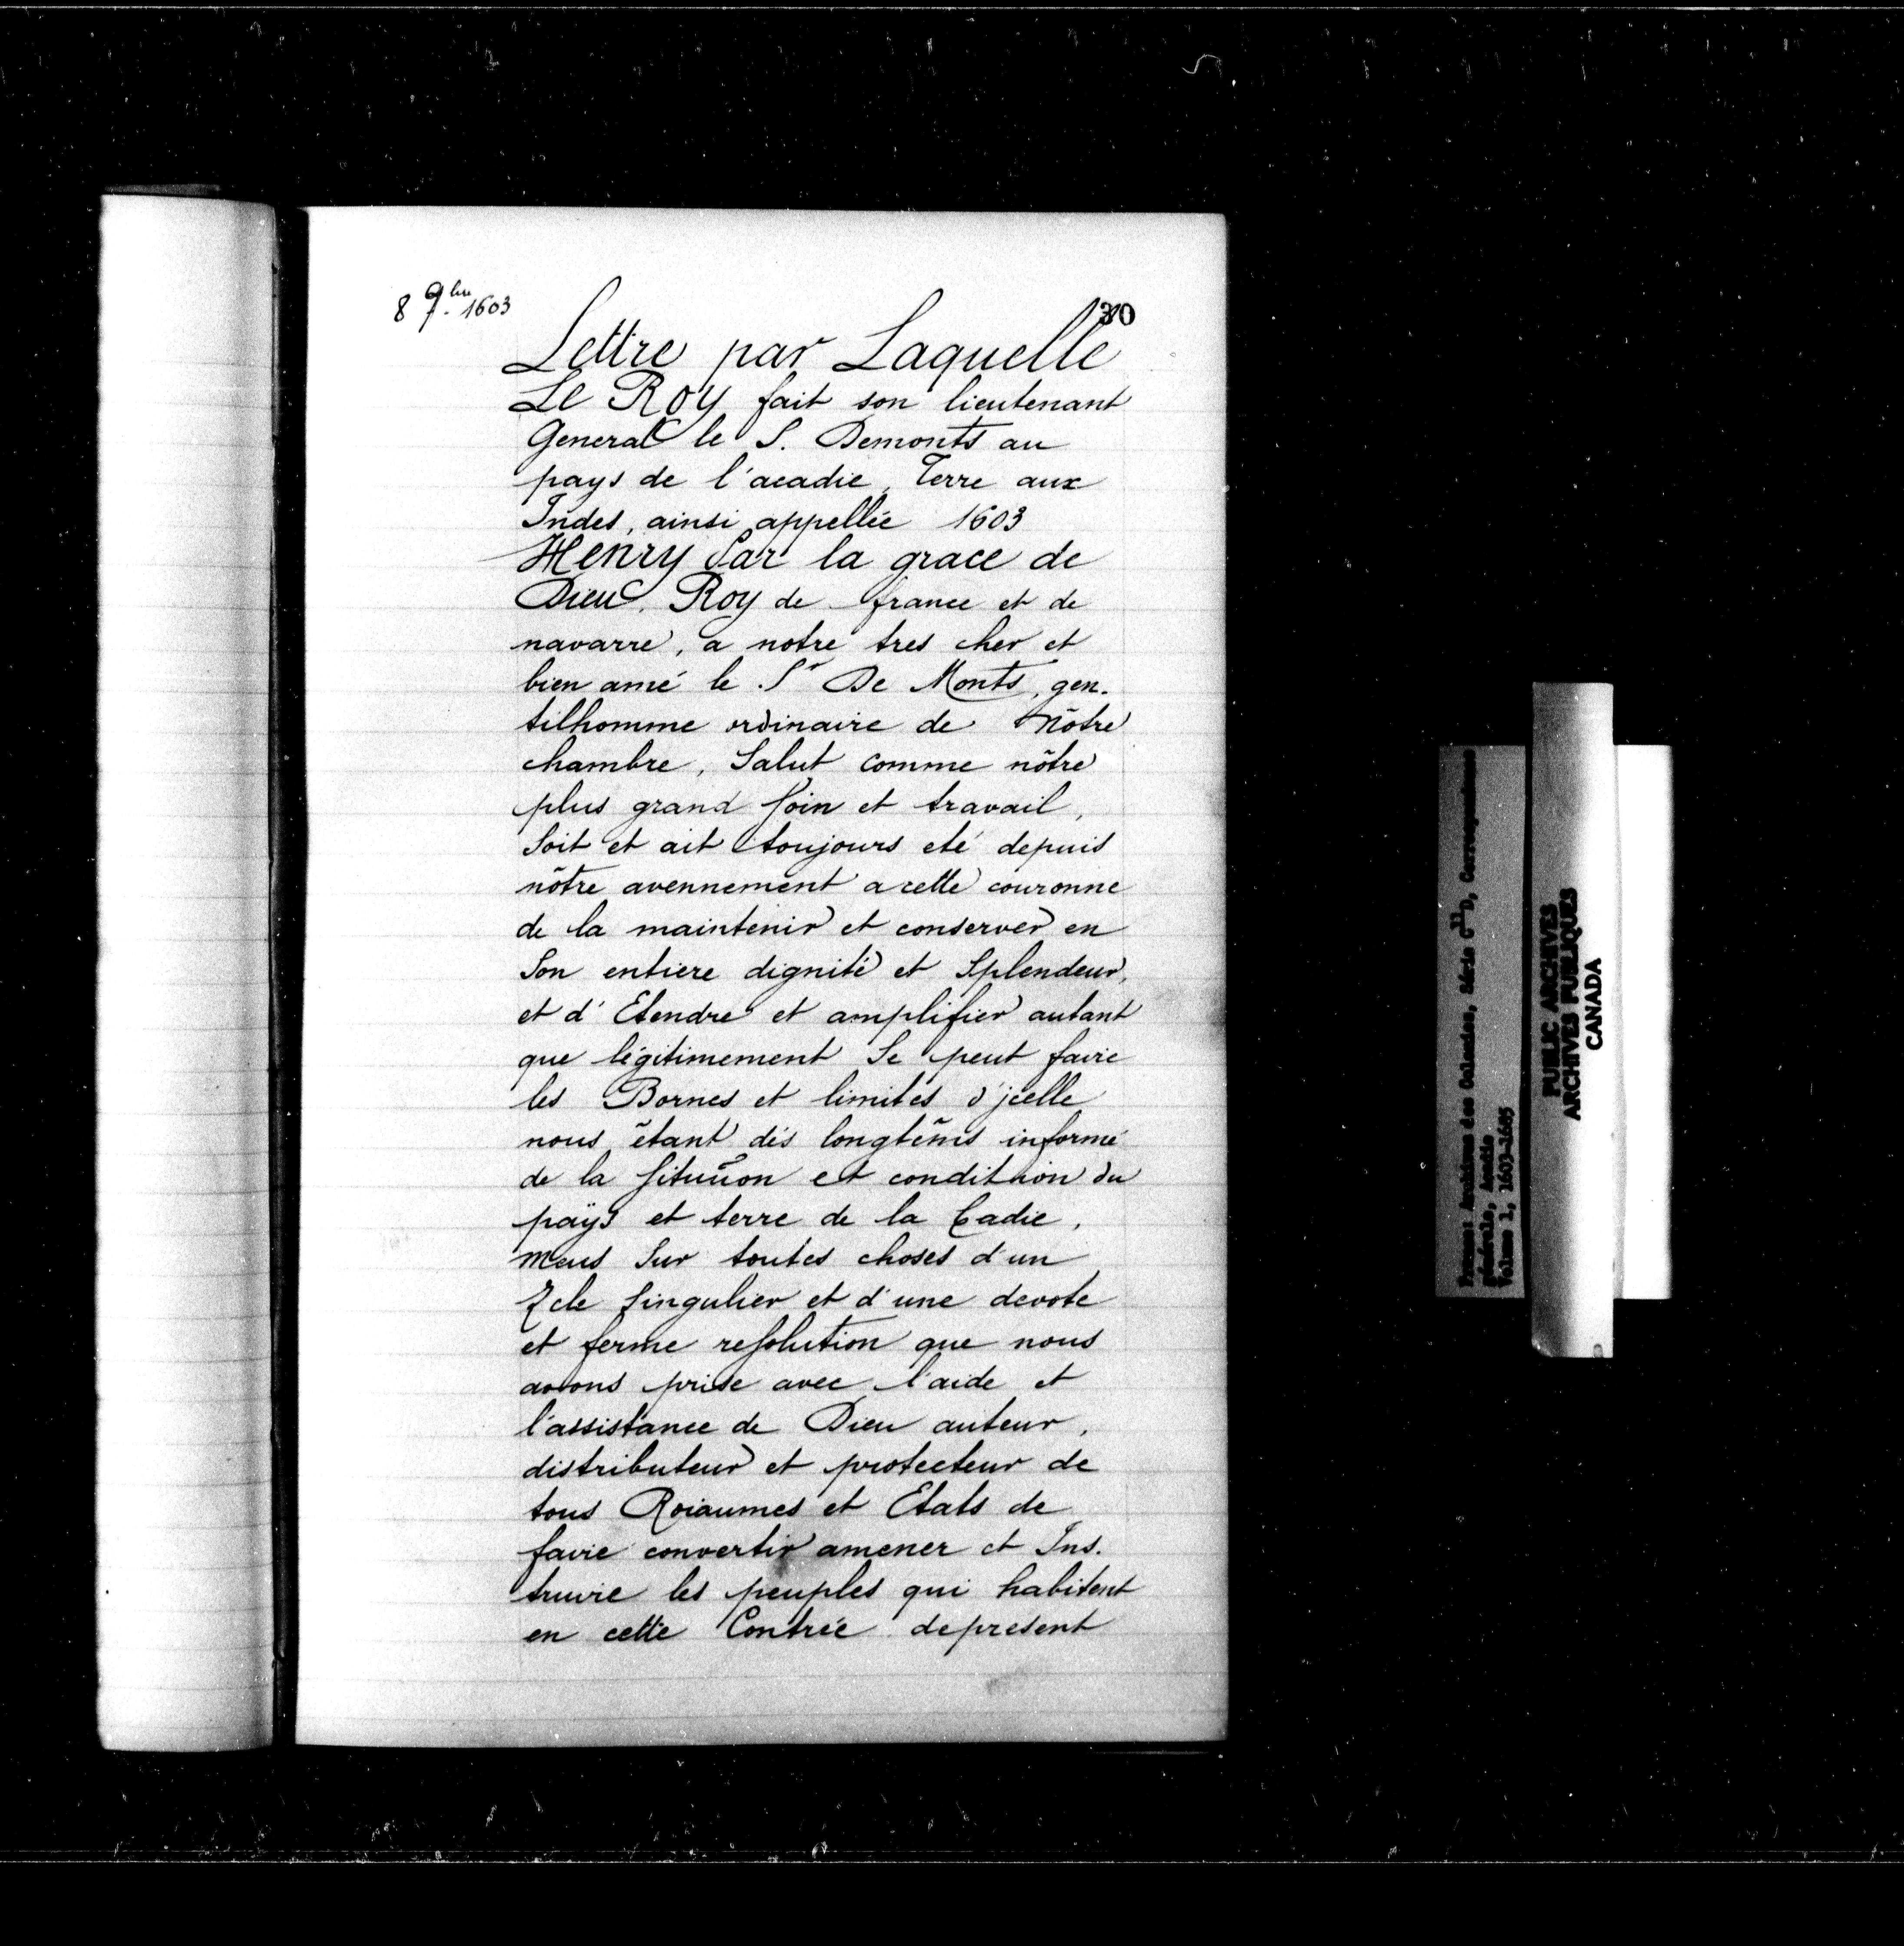 8 9bre 1603
30
Lettre par Laquelle
Le Roy fait son lieutenant
General le S. Demonts au
pays de l'acadie, Terre aux
Indes, ainsi appellée 1603
Henry Par la grace de
Dieu, Roy de france et de
navarre, a notre tres cher et
bien amé le Sr De Monts, gen-
tilhomme ordinaire de Nôtre
chambre, Salut comme nôtre
plus grand soin et travail,
Soit et ait toujours eté depuis
nôtre avennement a cette couronne
de la maintenir et conserver en
Son entiere dignité et Splendeur,
et d'Etendre et amplifier autant
que légitimement Se peut faire
les Bornes et limites d'jcelle
nous étant dés longtems informé
de la situãon et condithion du
païs et terre de la Cadie,
meus Sur toutes choses d'un
Zele singulier et d'une devote
et ferme resolution que nous
avons prise avec l'aide et
l'assistance de Dieu auteur,
distributeur et protecteur de
tous Roiaumes et Etats de
faire convertir amener et Ins-
truire les peuples qui habitent
en cette Contrée de present
France: Archives des Colonies, Série C11D, Correspondance
générale, Acadie
Volume 1, 1603-1685
PUBLIC ARCHIVES
ARCHIVES PUBLIQUES
CANADA